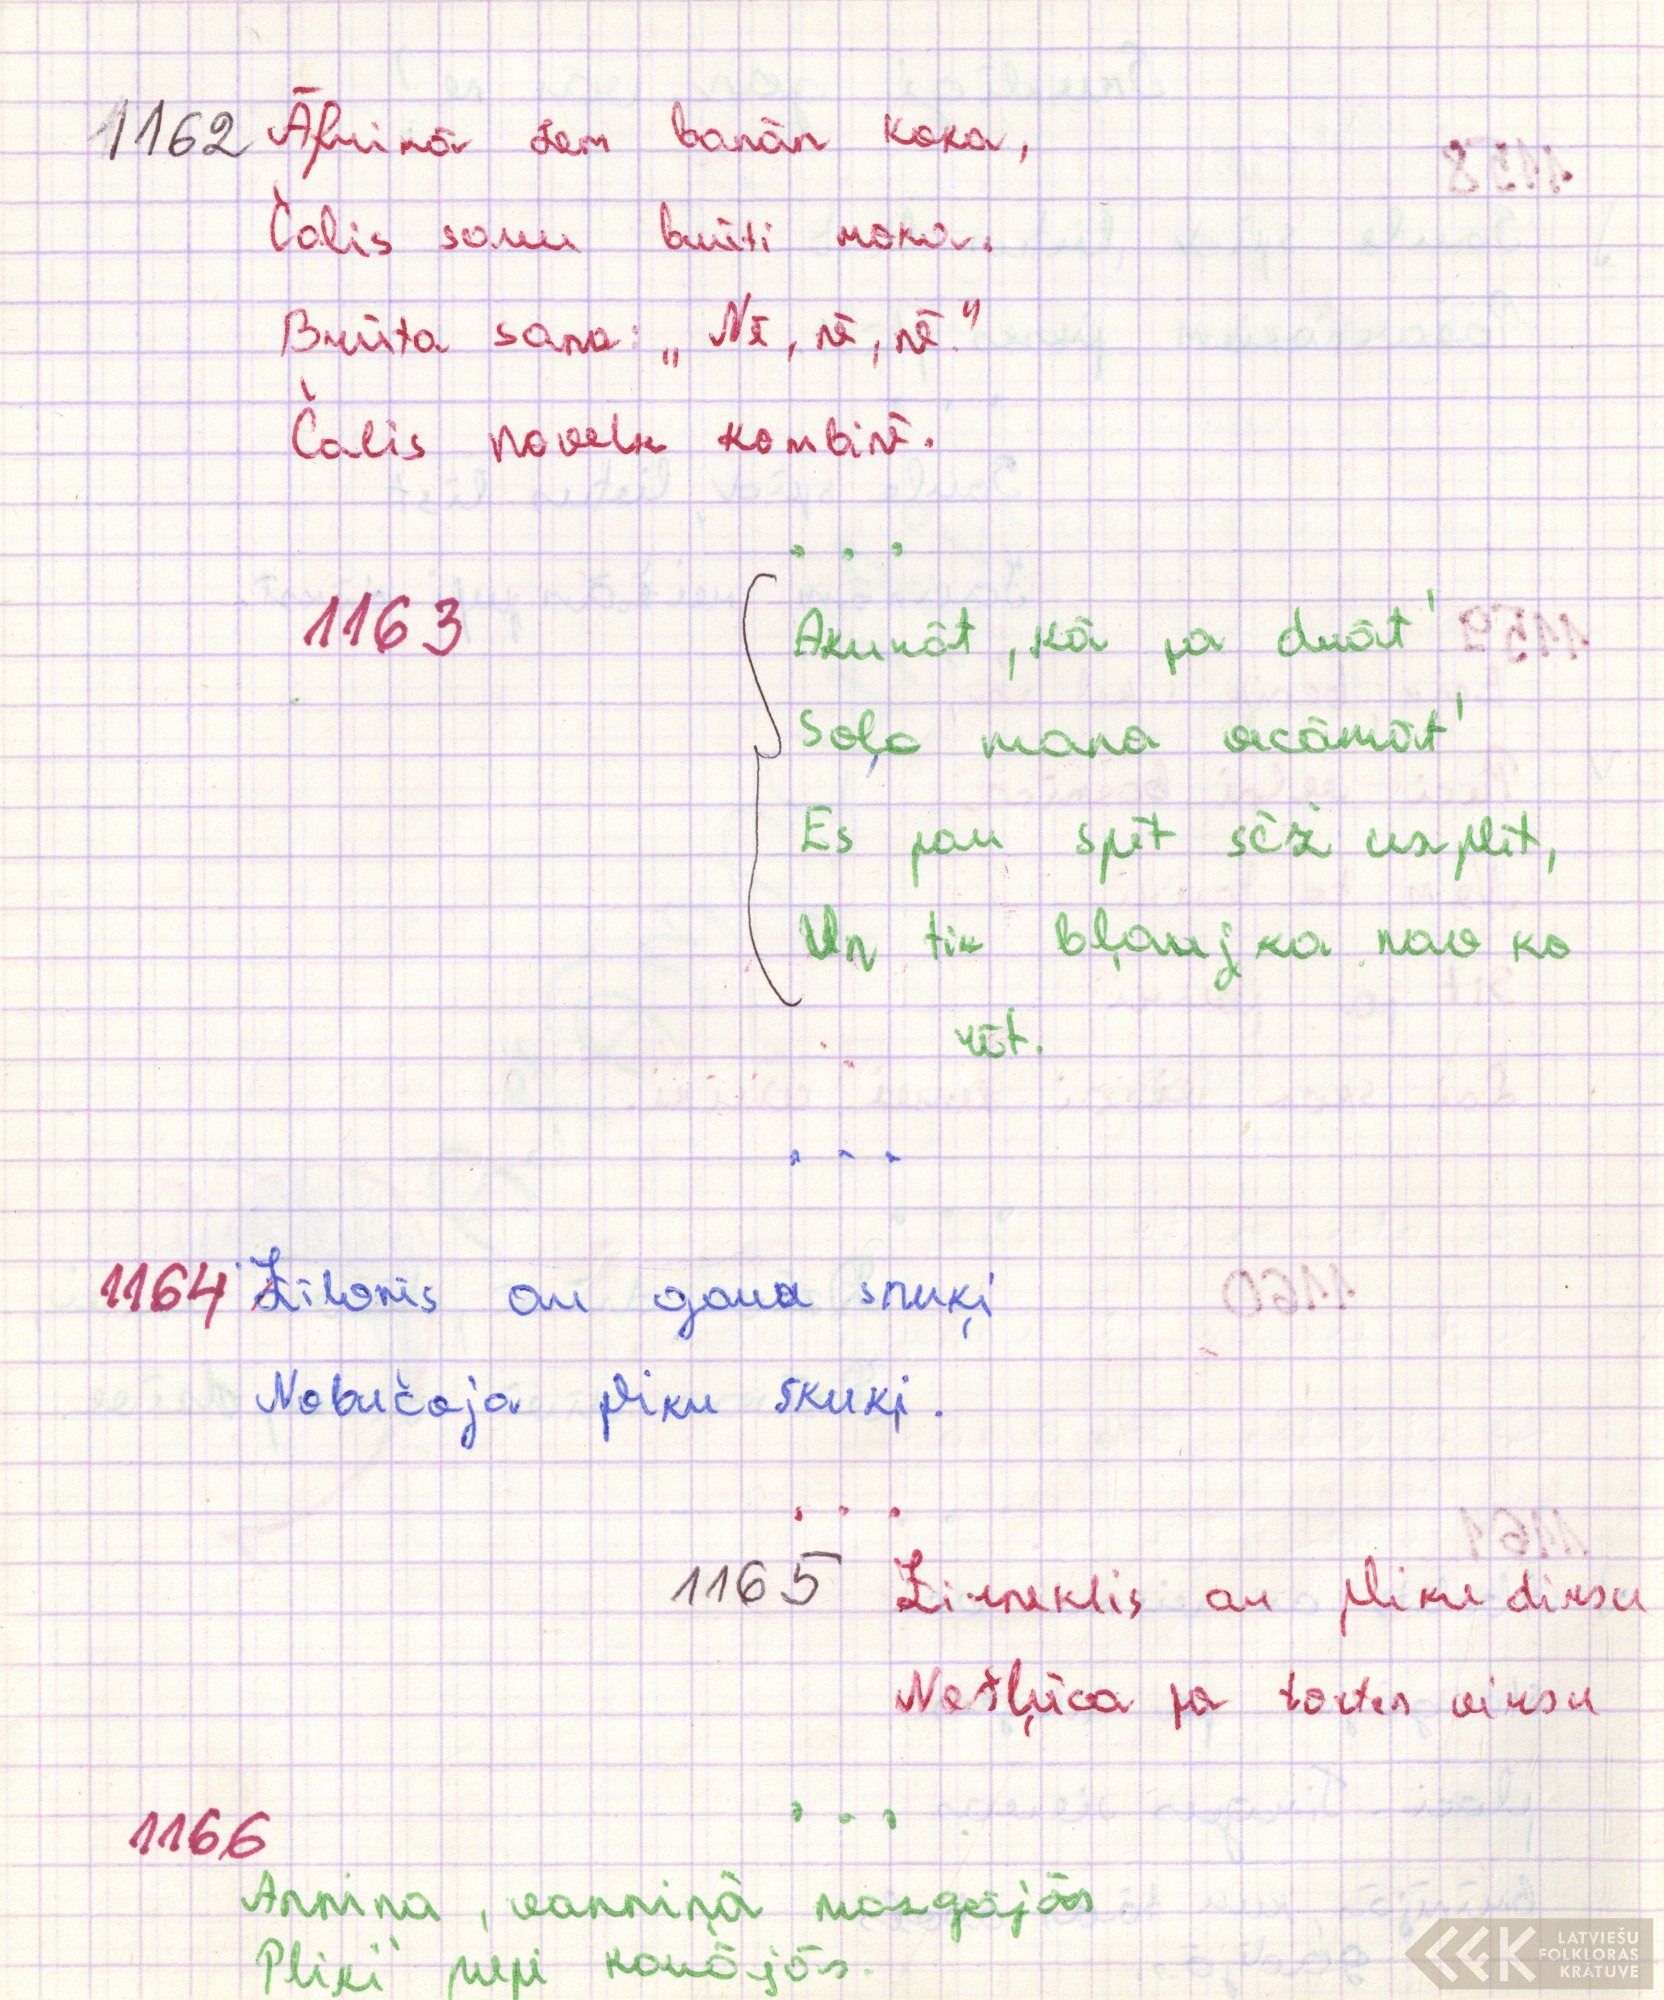 1162 Āfrikā zem banān koka,
Čalis savu brūti moka.
Brūta sana: „Nē, nē, nē."
Čalis novelk kombinē.
...
1163
Akurāt, kā pa drāt'
Soļo mana vecāmāt'
Es par spīt sēž uz plīt,
Un tik bļauj ka nav ko
rīt.
...
1164 Zilonis ar garu snuķi
Nobučoja pliku skuķi.
...
1165 Zirneklis ar pliku dirsu
Nošļūca pa tortes virsu
...
1166
Anniņa, vanniņā mazgājās
Pliki pupi karājās.
LATVIEŠU
FOLKLORAS
KRĀTUVE